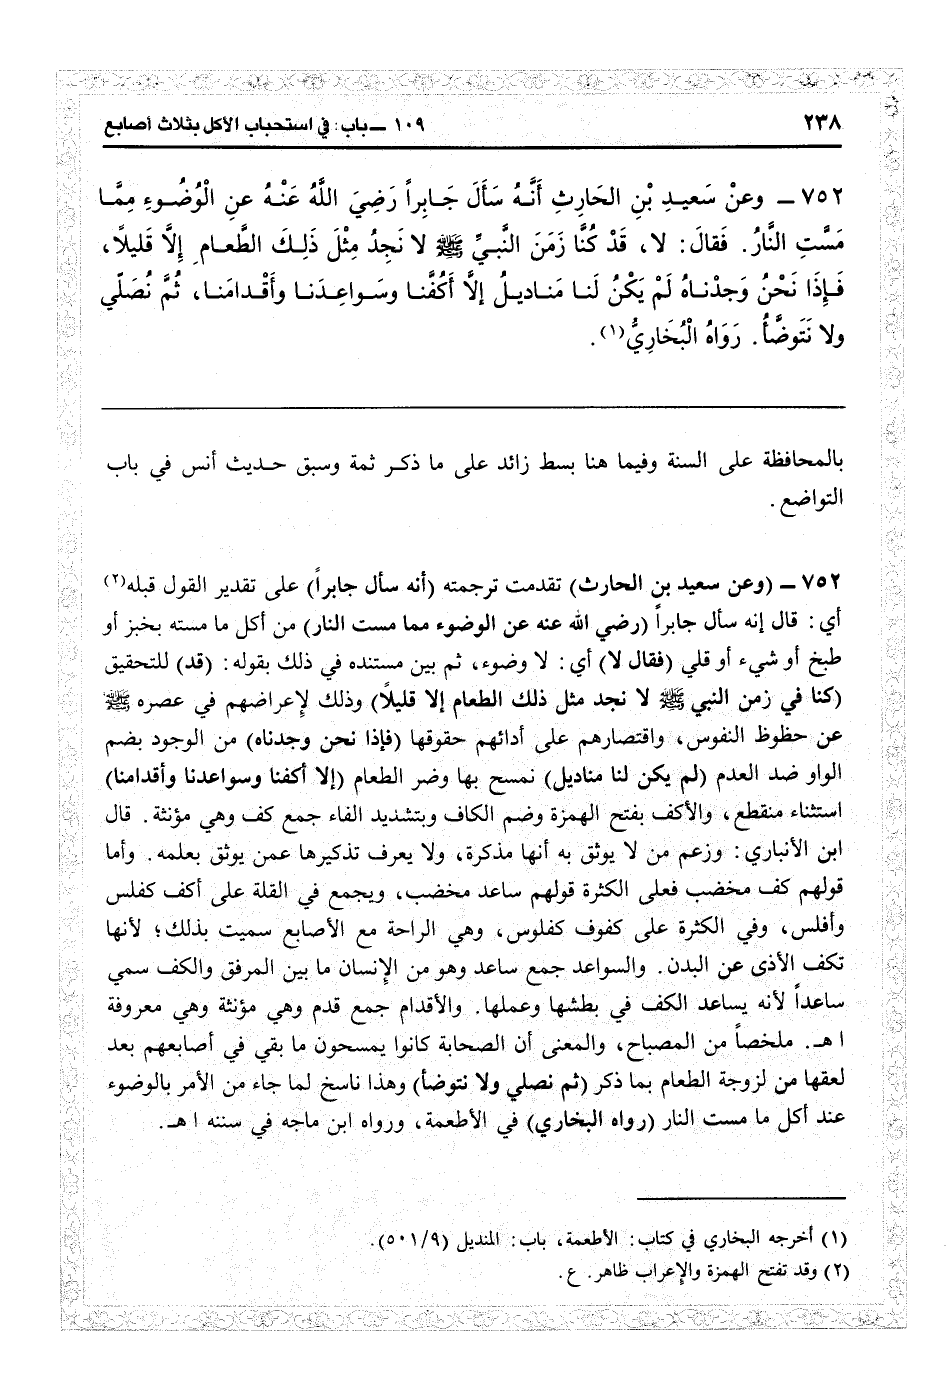 ٢٣٨
١٠٩ ــ باب: في استحباب الأكل بثلاث أصابع
٧٥٢ ــ وعنْ سَعيدِ بْنِ الحَارِثِ أَنَّهُ سَأَلَ جَابِراً رَضِيَ اللَّهُ عَنْهُ عنِ الْوُضُوءِ مِمَّا
مَسَّتِ النَّارُ. فَقالَ: لا، قَدْ كُنَّا زَمَنَ النَّبيِّ ﷺ لا نَجِدُ مِثْلَ ذَلِكَ الطَّعامِ إلَّا قَليلًا،
فَإِذَا نَحْنُ وَجَدْناهُ لَمْ يَكُنْ لَنا مَناديلُ إلاَّ أَكُفَّنا وسَواعِدَنا وأَقْدامَنا، ثُمَّ نُصَلّي
ولا نَتَوضَّأُ. رَوَاهُ الْبُخَارِيُّ(١).
بالمحافظة على السنة وفيما هنا بسط زائد على ما ذكر ثمة وسبق حديث أنس في باب
التواضع.
٧٥٢ ــ (وعن سعيد بن الحارث) تقدمت ترجمته (أنه سأل جابراً) على تقدير القول قبله(٢)
أي: قال إنه سأل جابراً (رضي الله عنه عن الوضوء مما مست النار) من أكل ما مسته بخبز أو
طبخ أو شيء أو قلي (فقال لا) أي: لا وضوء، ثم بين مستنده في ذلك بقوله: (قد) للتحقيق
(كنا في زمن النبي ﷺ لا نجد مثل ذلك الطعام إلا قليلًا) وذلك لإعراضهم في عصره ﷺ
عن حظوظ النفوس، واقتصارهم على أدائهم حقوقها (فإذا نحن وجدناه) من الوجود بضم
الواو ضد العدم (لم يكن لنا مناديل) نمسح بها وضر الطعام (إلا أكفنا وسواعدنا وأقدامنا)
استثناء منقطع، والأكف بفتح الهمزة وضم الكاف وبتشديد الفاء جمع كف وهي مؤنثة. قال
ابن الأنباري: وزعم من لا يوثق به أنها مذكرة، ولا يعرف تذكيرها عمن يوثق بعلمه. وأما
قولهم كف مخضب فعلى الكثرة قولهم ساعد مخضب، ويجمع في القلة على أكف كفلس
وأفلس، وفي الكثرة على كفوف كفلوس، وهي الراحة مع الأصابع سميت بذلك؛ لأنها
تكف الأذى عن البدن. والسواعد جمع ساعد وهو من الإنسان ما بين المرفق والكف سمي
ساعداً لأنه يساعد الكف في بطشها وعملها. والأقدام جمع قدم وهي مؤنثة وهي معروفة
اهـ. ملخصاً من المصباح، والمعنى أن الصحابة كانوا يمسحون ما بقي في أصابعهم بعد
لعقها من لزوجة الطعام بما ذكر (ثم نصلي ولا نتوضأ) وهذا ناسخ لما جاء من الأمر بالوضوء
عند أكل ما مست النار (رواه البخاري) في الأطعمة، ورواه ابن ماجه في سننه اهـ.
(١) أخرجه البخاري في كتاب: الأطعمة، باب: المنديل (٥٠١/٩).
(٢) وقد تفتح الهمزة والإعراب ظاهر. ع.